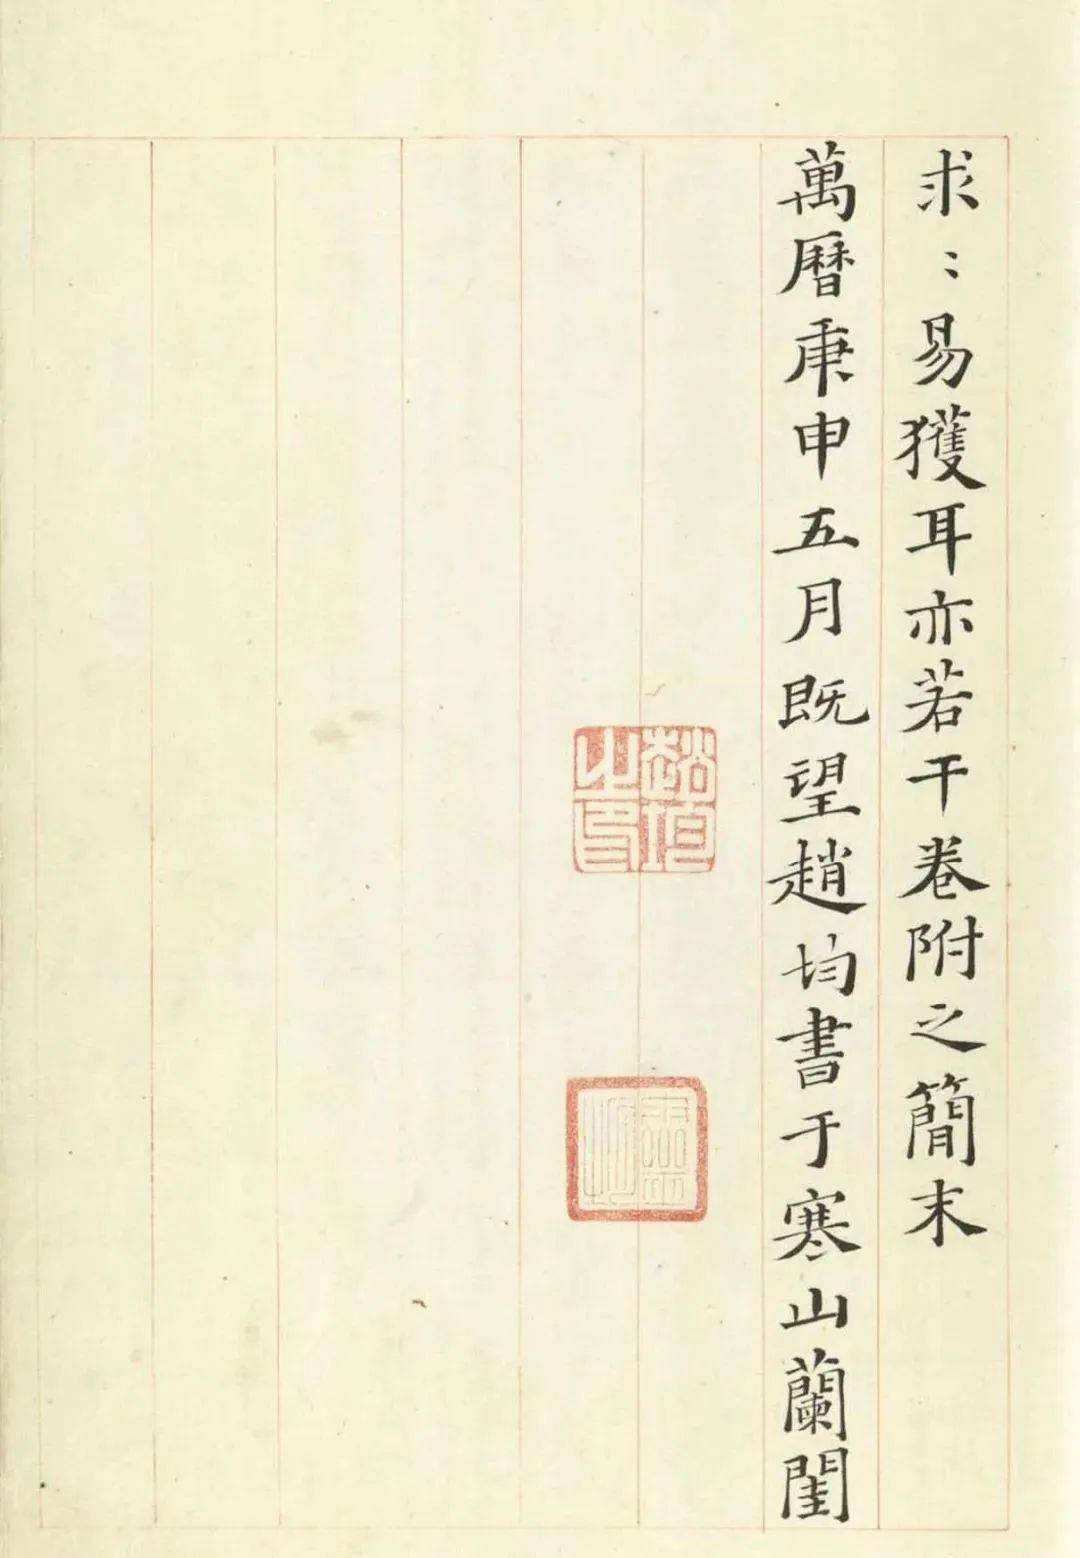 求〻易獲耳亦若干卷附之簡末
萬曆庚申五月既望趙均書于寒山蘭閨
趙均之印
靈均